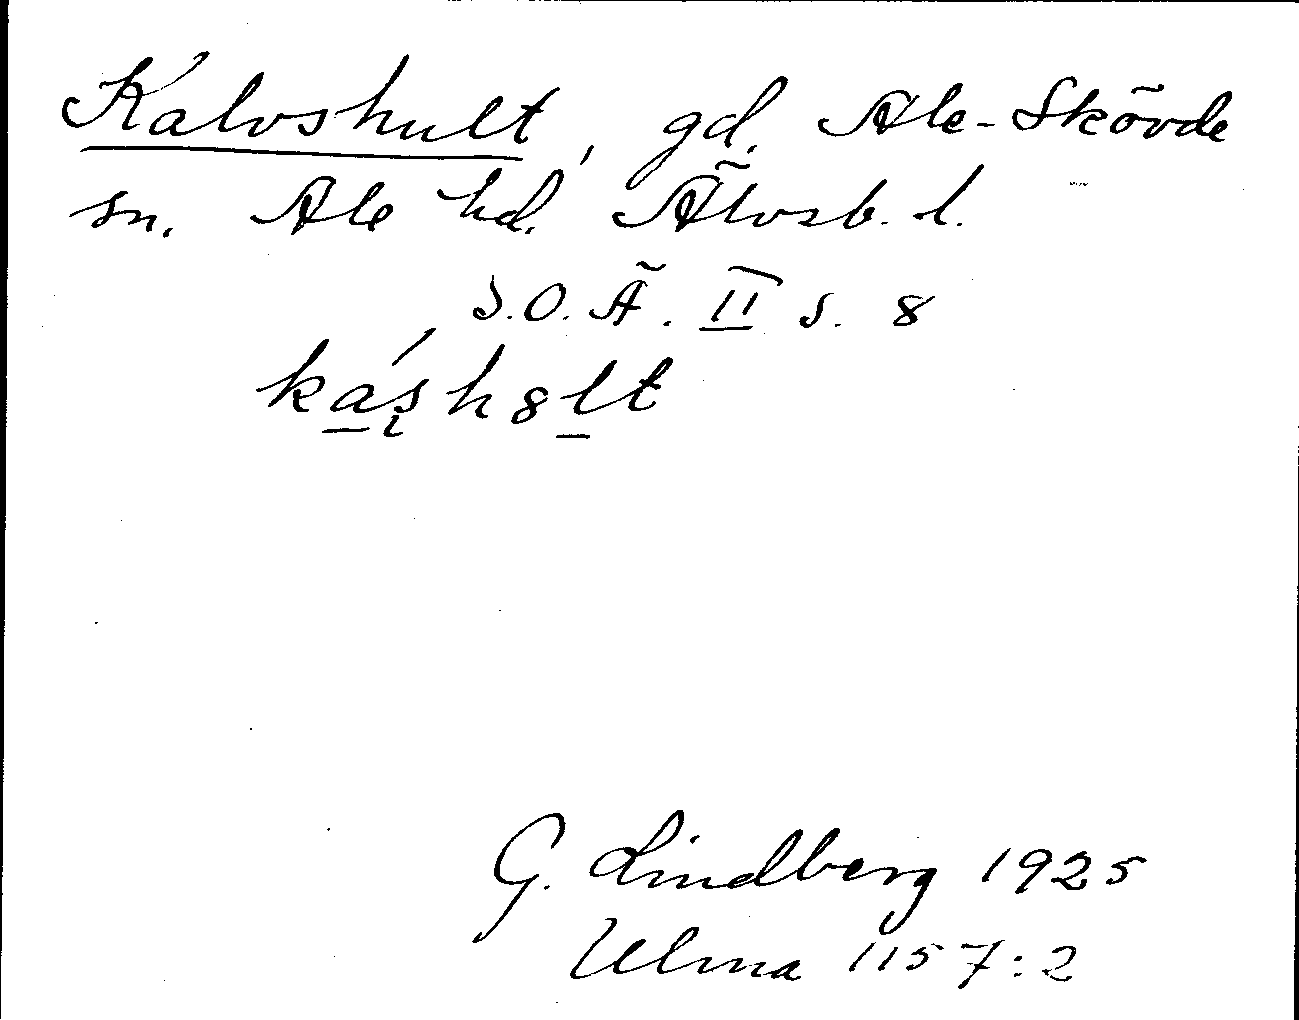 Kalvshult, gd. Ale-Skövde
sn. Ale hd. Älvsb. l.
S.O.Ä. II s. 8
ka̠´s̨h8l̠t
G. Lindberg 1925
Ulma 1157:2